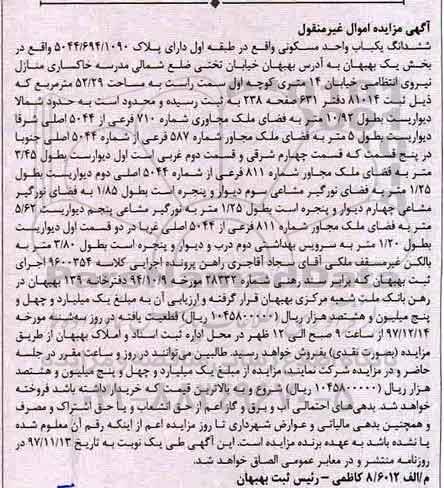 آگهی مزایده اموال غیرمنقول
ششدانگ یکباب واحد مسکونی واقع در طبقه اول دارای پلاک ۵۰۴۴/۶۹۴/۱۰۹۰ واقع در
بخش یک بهبهان به آدرس بهبهان خیابان تختی ضلع شمالی مدرسه خاکساری منازل
نیروی انتظامی خیابان ۱۴ متری کوچه اول سمت راست به مساحت ۵۲/۲۹ مترمربع که
ذیل ثبت ۸۱۰۱۴ دفتر ۶۳۱ صفحه ۲۳۸ به ثبت رسیده و محدود است به حدود شمالا
دیواریست بطول ۱۰/۹۲ متر به فضای ملک مجاوری شماره ۷۱۰ فرعی از ۵۰۴۴ اصلی شرقا
دیواریست بطول ۵ متر به فضای ملک مجاور شماره ۵۸۷ فرعی از شماره ۵۰۴۴ اصلی جنوبا
در پنج قسمت که قسمت چهارم شرقی و قسمت دوم غربی است اول دیواریست بطول ۳/۴۵
متر به فضای ملک مجاور شماره ۸۱۱ فرعی از شماره ۵۰۴۴ اصلی دوم دیواریست بطول
۱/۲۵ متر به فضای نورگیر مشاعی سوم دیوار و پنجره است بطول ۱/۸۵ به فضای نورگیر
مشاعی چهارم دیوار و پنجره است بطول ۱/۲۵ متر به نورگیر مشاعی پنجم دیواریست ۵/۶۲
متر به فضای ملک مجاور شماره ۸۱۱ فرعی از ۵۰۴۴ اصلی غربا در دو قسمت اول دیواریست
بطول ۱/۲۰ متر به سرویس بهداشتی دوم درب و دیوار و پنجره است بطول ۳/۸۰ متر به
بالکن غیرمسقف ملکی آقای سجاد آقاجری راهن پرونده اجرایی کلاسه ۹۶۰۰۳۵۴ اجرای
ثبت بهبهان که برابر سند رهنی شماره ۲۸۳۳۲ مورخه ۹۴/۱۰/۹ دفترخانه ۱۳۹ بهبهان در
رهن بانک ملت شعبه مرکزی بهبهان قرار گرفته و ارزیابی آن به مبلغ یک میلیارد و چهل و
پنج میلیون و هشتصد هزار ریال (۱۰۴۵۸۰۰۰۰۰ ریال) قطعیت یافته در روز سه‌شنبه مورخه
۹۷/۱۲/۱۴ از ساعت ۹ صبح الی ۱۲ ظهر در محل اداره ثبت اسناد و املاک بهبهان از طریق
مزایده (بصورت نقدی) بفروش خواهد رسید. طالبین می‌توانند در روز و ساعت مقرر در جلسه
حاضر و در مزایده شرکت نمایند، مزایده از مبلغ یک میلیارد و چهل و پنج میلیون و هشتصد
هزار ریال (۱۰۴۵۸۰۰۰۰۰ ریال) شروع و به بالاترین قیمت که خریدار داشته باشد فروخته
خواهد شد. بدهی‌های احتمالی آب و برق و گاز اعم از حق انشعاب و یا حق اشتراک و مصرف
و همچنین بدهی مالیاتی و عوارض شهرداری تا روز مزایده اعم از اینکه رقم آن معلوم شده
یا نشده باشد به عهده برنده مزایده است. این آگهی طی یک نوبت به تاریخ ۹۷/۱۱/۱۳ در
روزنامه منتشر و در معابر عمومی الصاق خواهد شد.
م/الف ۸/۶۰۱۲ کاظمی – رئیس ثبت بهبهان